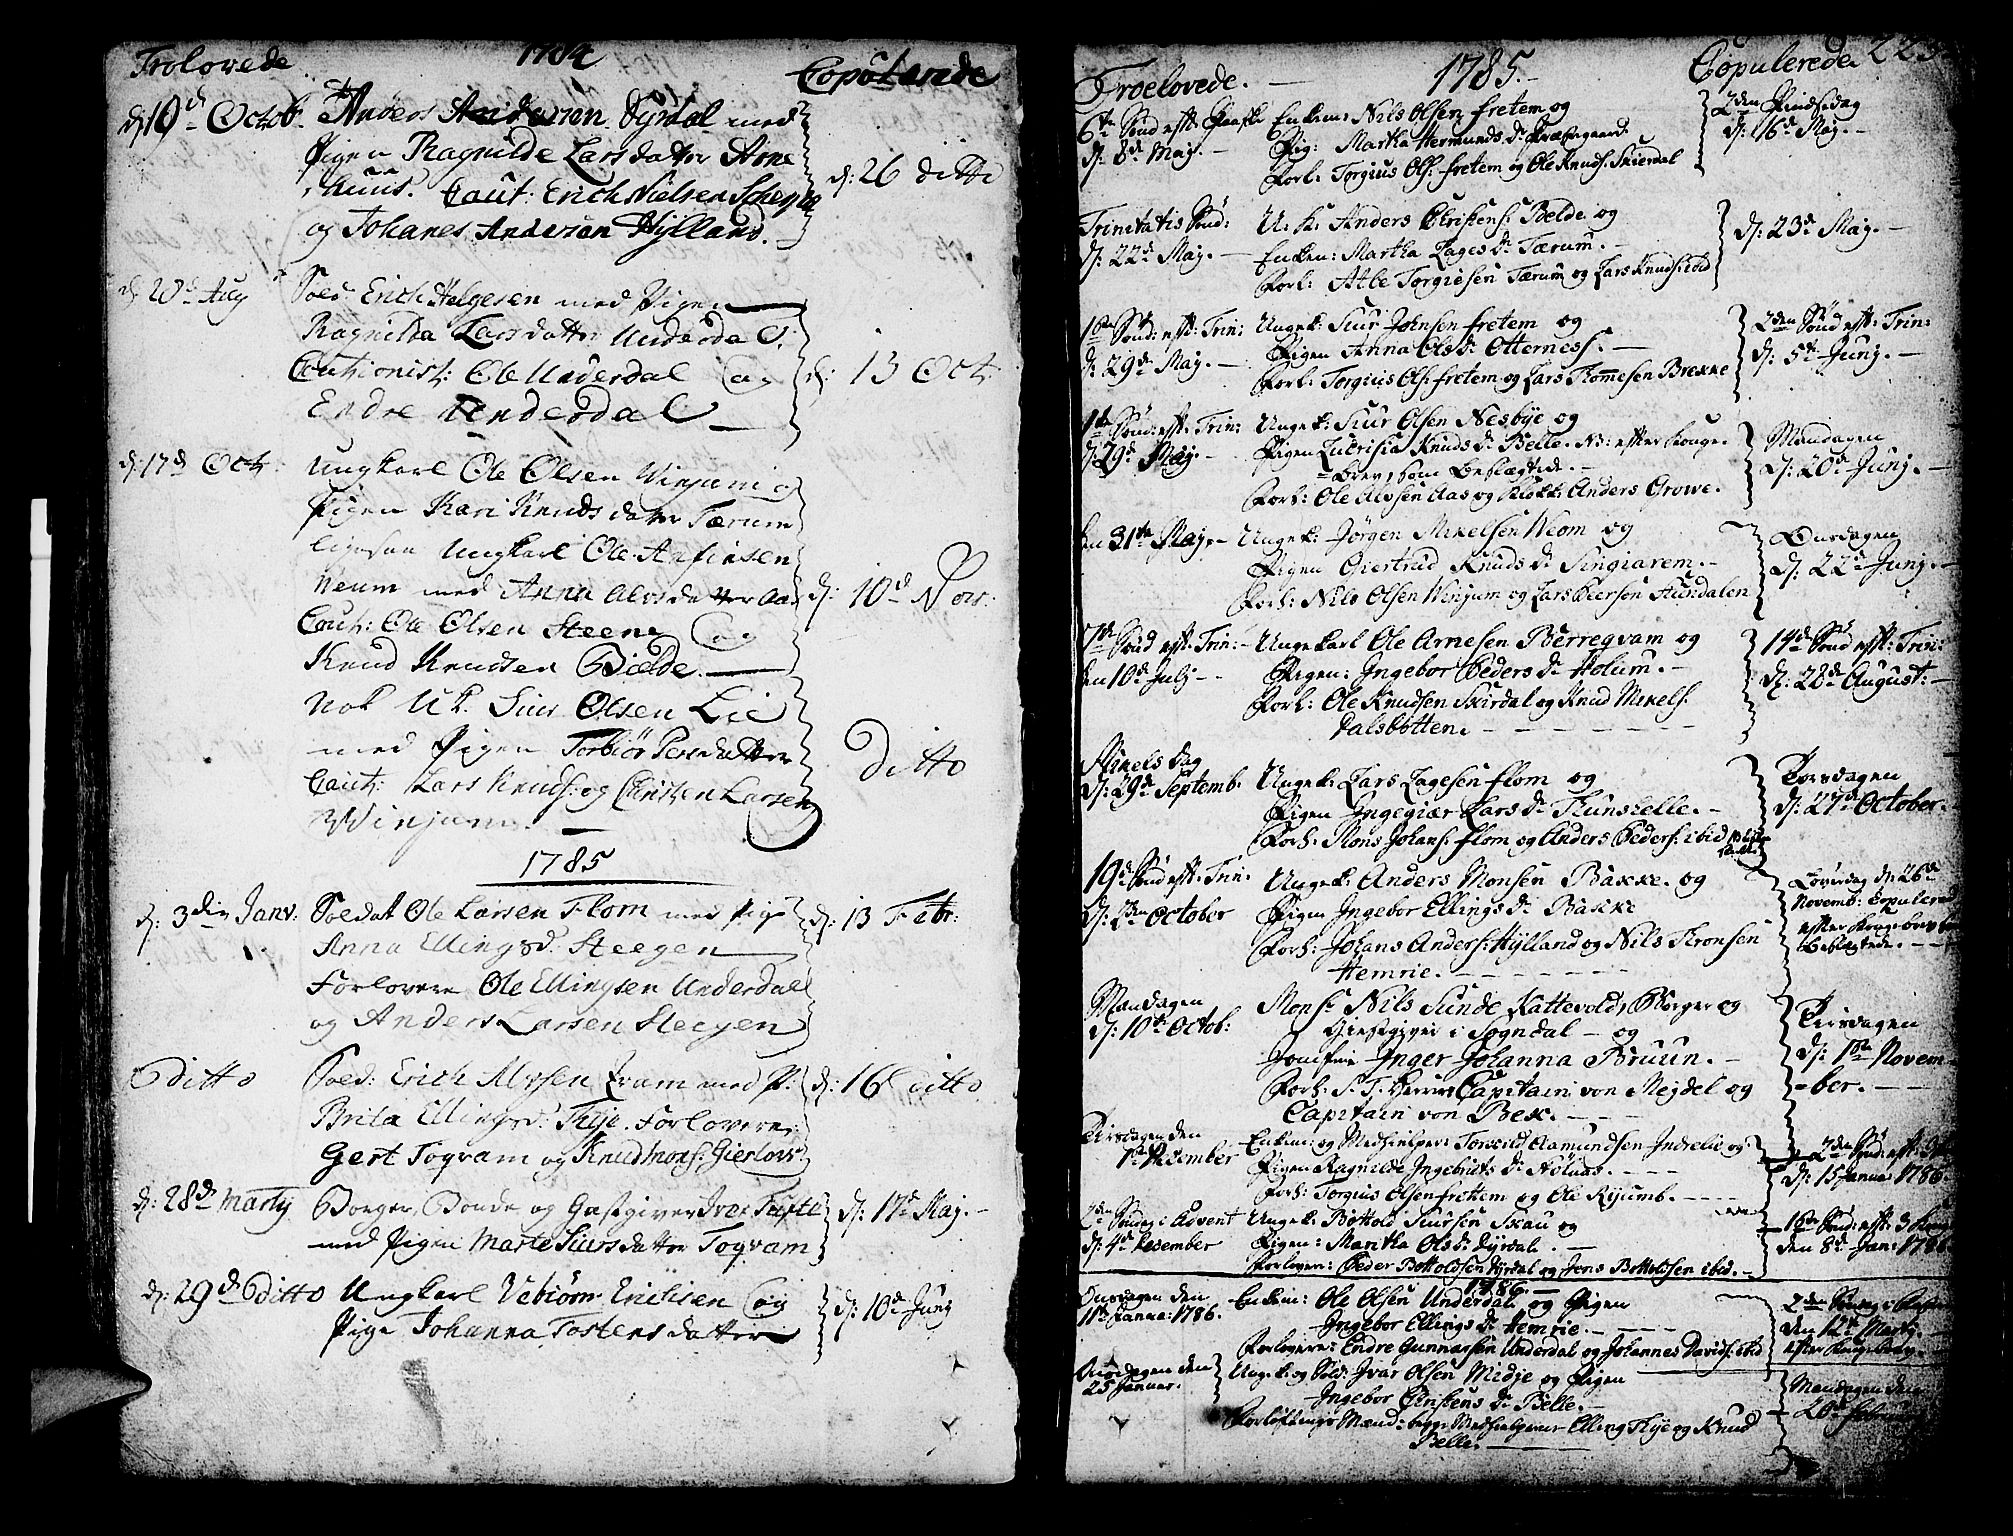 Trolovede 1784 Copulerede
d: 19d Octob. Anders Andersen Syrdal med
Pigen Ragnilde Larsdatter Arne
huus. Caut: Erich Nielsen
og Johanes Andersen Hylland.
d: 26 ditto
d. 20d Aug Sold: Erich Helgesen med Pigen
Ragnilda Larsdatter Underdal.
Cautionist: Ole Underdal og
Endre Underdal
d: 13 Oct:
d: 17d Oct: Ungkarl Ole Olsen Winjum og
Pigen Kari Knudsdatter Tærum
ligesaa Ungkarl Ole Anfinsen
Weum med Anna Alvsdatter Aas
Caut: Ole Olsen Steene og
Knud Knudsen Bjelde.
d: 10d Nov:
Nok U.k. Siur Olsen Lie
med Pigen Torbiør Persdatter
Caut: Lars Knuds: og Christen Larsen
Winjum.
Ditto
1785
d: 3die Janv: Soldat Ole Larsen Flom med Pige
Anna Ellingsd: Steegen
Forlovere Ole Ellingsen Underdal
og Anders Larsen Steegen
d: 13 Febr:
Ditto Sold: Erich Alvsen Fram med P:
Brita Ellingsd: Thije. Forlovere:
Gert Togvam og Knud Mons: Gierlov
d: 16 Ditto
d: 28d Martij Borger, Bonde og Gastgiver Iver Tufte
med Pigen Marte Siursdatter Togvam
d: 17d Maj.
d: 29d Ditto Ungkarl Vebiørn Erichsen og
Pige Johanna Tostensdatter
d: 10d Junj
Troelovede. 1785. Copulerede 223
6te Sønd: efft: Paaske Enkem: Nils Olsen fretem og
d: 8d Maj. Pig: Martha Hermunds Dr Præstegaard
Forl: Torgius Ols: fretem og Ole Knuds: Skierdal
2den Pindsedag
d: 16d Maj.
Trinitatis Sønd: U. K. Anders Christens: Belde og
d: 22d Maj. Enken: Martha Lages Dr Tærum.
Forl: Atle Torgiesen Tærum og Lars Knuds: ibid
d: 23d Maj.
1te Sønd: efft: Trin: Ungek: Siur Johnsen fretem og
d: 29d Maj. Pigen Anna Olsdr Otterness.
Forl: Torgius Ols: fretem og Lars Thomesen Brekke
2den Sønd: efft: Trin:
d: 5te Junj.
1te Sønd: efft: Trin: Ungek: Siur Olsen Nesbye og
d: 29d Maj. Pigen Lucrisia Knuds Dr Belle. NB: efter Konge-
Brev, som Beslægtede.
Forl: Ole Alvsen Aas og Klokk: Anders Growe.
Mandagen
d: 20d Junj.
den 31te Maj. Ungek: Jørgen Mikelsen Weom og
Pigen Giertrud Knuds Dr Singiarem.
Forl: Nils Olsen Winjum og Lars Peersen Hundalen
Onsdagen
d: 22d Junj.
7de Sønd efft: Trin: Ungekarl Ole Arnesen Berreqvam og
den 10d Julj Pigen: Ingebor Peders Dr Holum.
Forl: Ole Knudsen Skirdal og Knud Mikels:
Dalsbotten.
14d Sønd efft: Trin:
d: 28d August:
Mikels Dag
d: 29d Septemb. Ungek: Lars Lagesen flom og
Pigen Ingegiær Lars Dr Thunshelle.
Forl: Mons Johans: flom og Anders Peders: ibid
Torsdagen
d: 27d October.
19d Sønd efft: Trin: Ungek: Anders Monsen Bakke. og
d: 2den October Pigen Ingebor Ellings Dr Bakke
Forl: Johans Anders: Hylland og Nils Thronsen
Hemrie.
Løverdag d: 26d
Novemb: Copulered
efter Kongebrev som
Beslægtede.
Mandagen Mons: Nils Sunde Kattevold, Borger og
d: 10te Octob: Giestgiver i Sogndal og
Jomfrue Inger Johanna Bruun.
Forl: S. T. Herrer Capitain von Mejdel og
Capitain von Bex.
Tirsdagen
d: 1te Novem-
ber.
Tirsdagen den Enkem: og Medhielper: Torkild Aamundsen Indrelie og
1te December Pigen Ragnilde Ingebrigts Dr Nølaas.
Forl: Torgius Olsen frettem og Ole Ryumb.
2den Sønd: efft:
d: 15 Januar 1786.
2den Søndag i Advent Ungek: Bottold Siursen Skau og
d: 4d December Pigen: Maritha Ols Dr Dyrdal.
Forlovere: Peder Bottoldsen Dyrdal og Jens Bottoldsen ibid.
1te Sønd: efft: 3 Kong
den 8d Jan: 1786
1786.
Onsdagen den Enkem: Ole Olsen Underdal og Pigen
11te Janua: 1786. Ingebor Ellings Dr Hemrie.
Forlovere: Endre Gunnarsen Underdal og Johannes Davids: ibid
2den Søndag i
den 12te Martj.
efter Kongebrev.
Onsdagen den Ungek: og Sold: Ivar Olsen Midje og Pigen
25 Januar. Ingebor Christens Dr Belle.
Forløftnings Mænd: begge Medhielpere Elling Thije og Knud
Belle.
Mandagen den
20d Februar